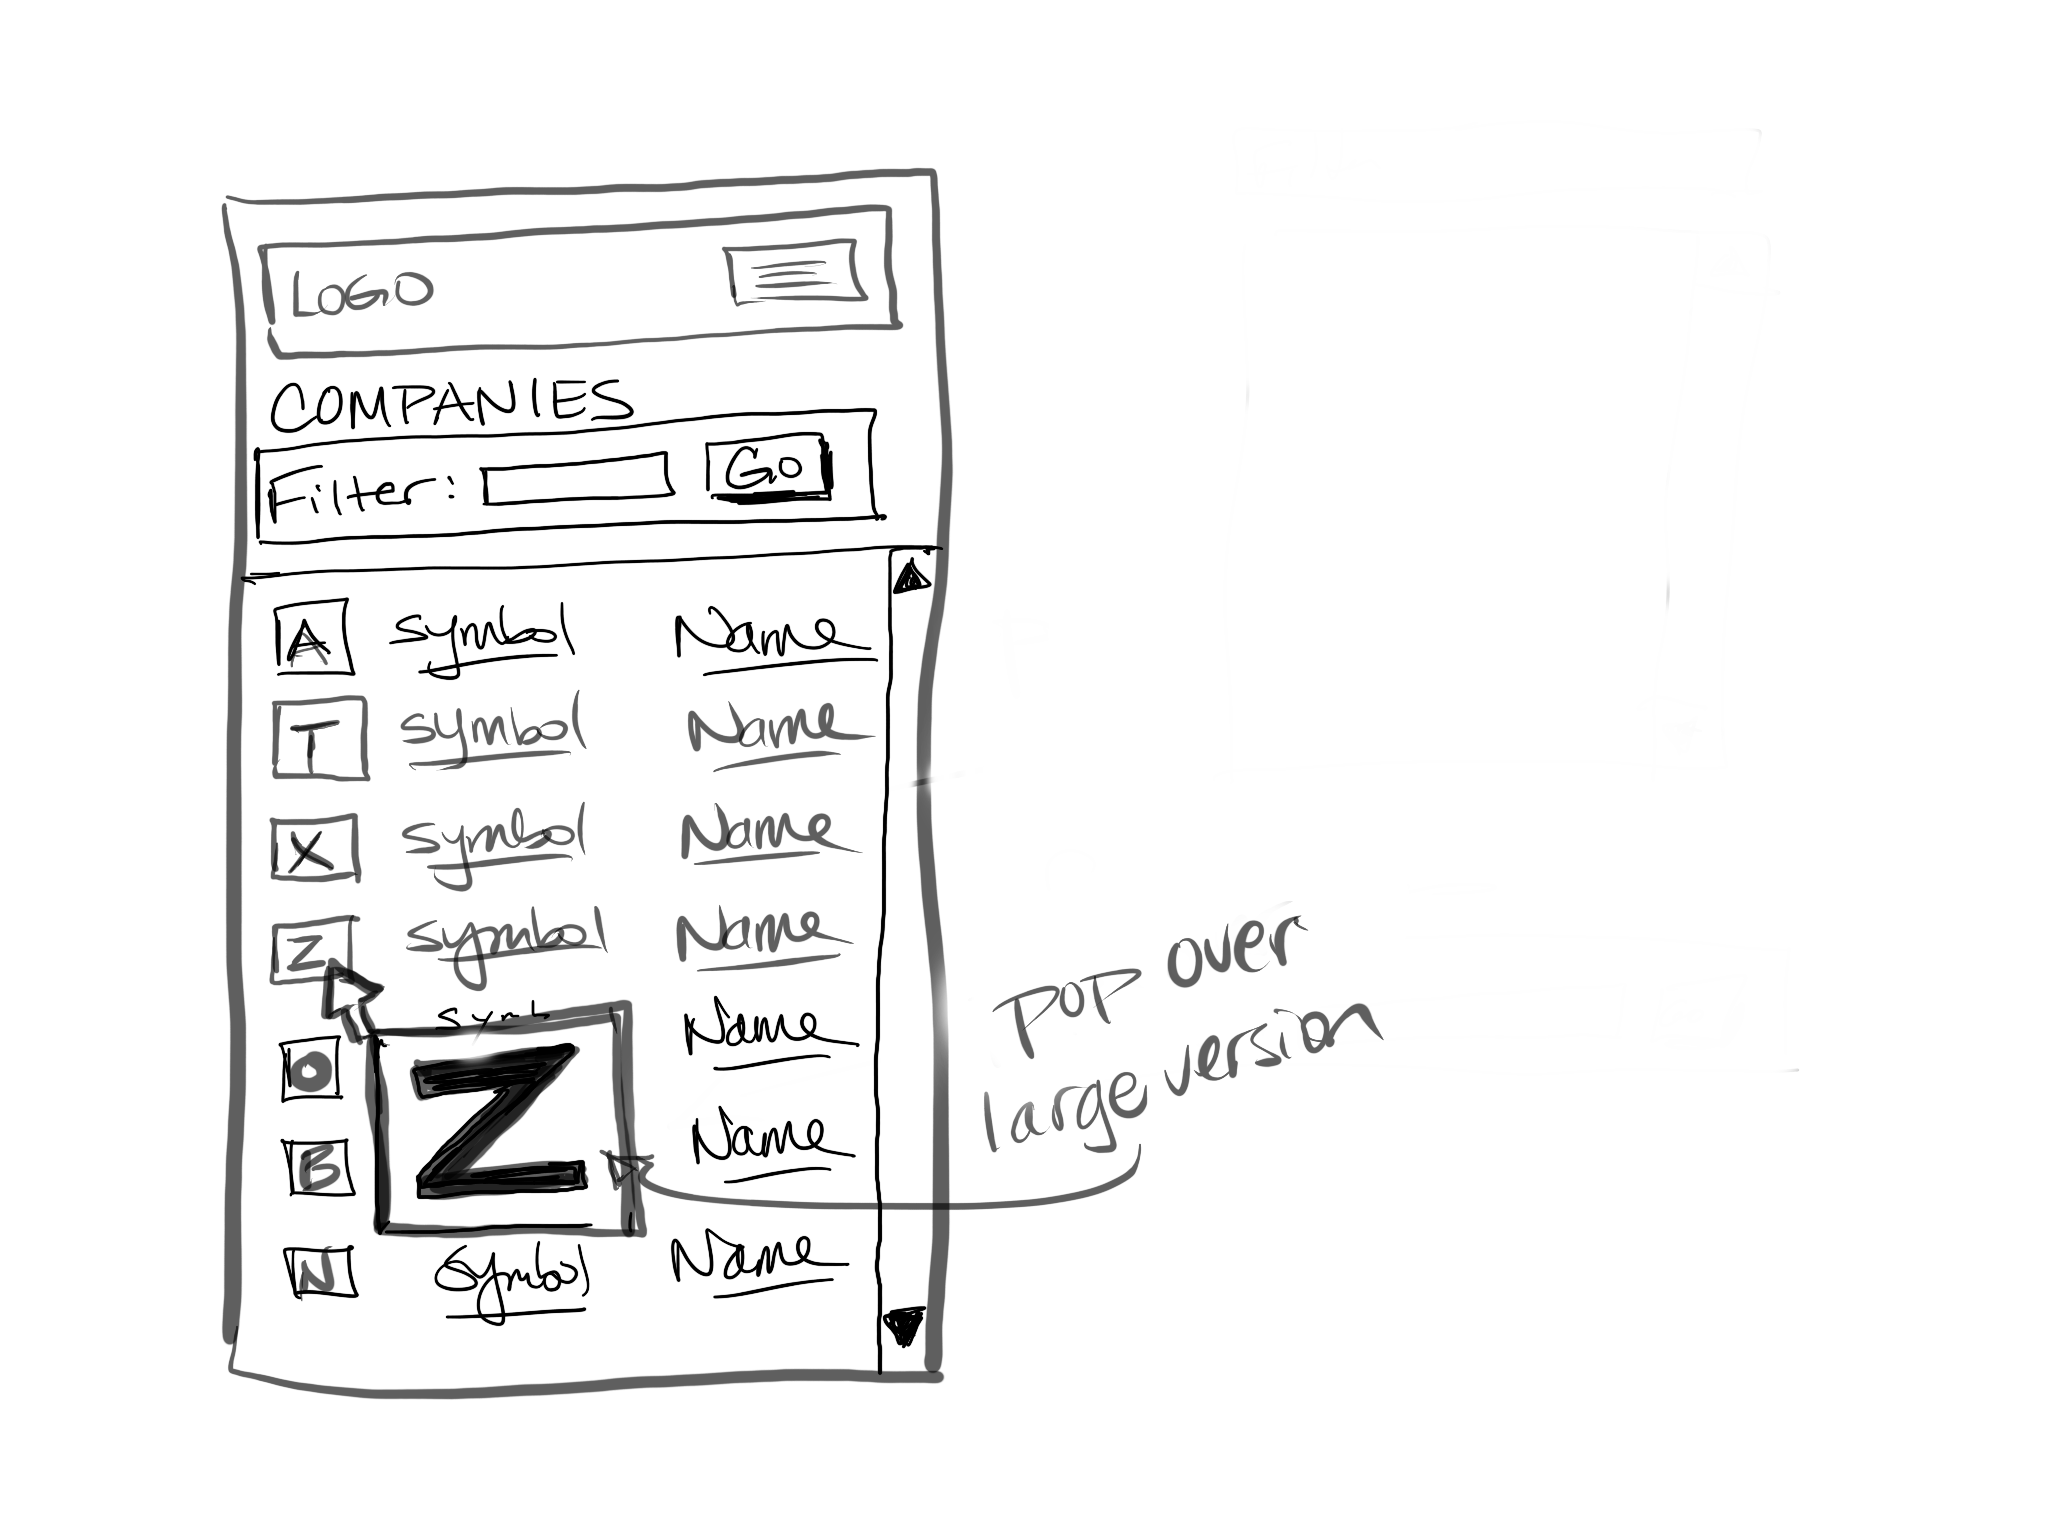 LOGO
COMPANIES
Filter: Go
A symbol Name
T symbol Name
X symbol Name
Z symbol Name
symb Name
O
Z
B Name
N symbol Name
pop over
large version